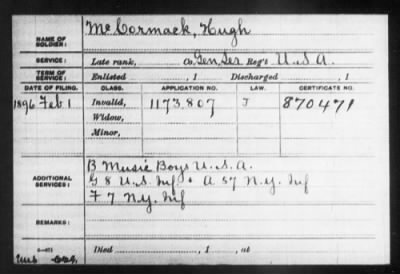 NAME OF SOLDIER: Mc Cormack, Hugh
SERVICE: Late rank, Co. Gen. Ser Reg't U.S.A.
TERM OF SERVICE: Enlisted , 1 Discharged , 1
DATE OF FILING. CLASS. APPLICATION NO. LAW. CERTIFICATE NO.
1896 Feb 1 Invalid, 1173.807 J 870471
Widow,
Minor,
B Music Boys U.S.A.
ADDITIONAL SERVICES: G 8 U.S. Inf. A 57 N.Y. Inf
F 7 N.Y. Inf
REMARKS:
Died , 1 , at